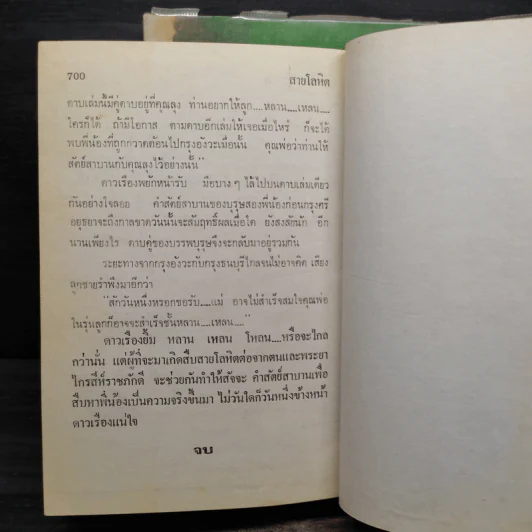 700 สายโลหิต
ดาบเล่มนี้มีคู่ดาบอยู่ที่คุณลุง ท่านอยากให้ลูก....หลาน....เหลน....
ใครก็ได้ ถ้ามีโอกาส ตามดาบอีกเล่มให้เจอเมื่อไหร่ ก็จะได้
พบพี่น้องที่ถูกกวาดต้อนไปกรุงอังวะเมื่อนั้น คุณพ่อว่าท่านให้
สัตย์สาบานกับคุณลุงไว้อย่างนั้น”
ดาวเรืองพยักหน้ารับ มือบางๆ ไล้ไปบนดาบเล่มเดียว
กันอย่างใจลอย คำสัตย์สาบานของบุรุษสองพี่น้องก่อนกรุงศรี
อยุธยาจะถึงกาลขาดวันนั้นจะสัมฤทธิ์ผลเมื่อใด ยังสงสัยนัก อีก
นานเพียงไร ดาบคู่ของบรรพบุรุษจึงจะกลับมาอยู่รวมกัน
ระยะทางจากกรุงอังวะกับกรุงธนบุรีไกลจนไม่อาจคิด เสียง
ลูกชายรำพึงมาอีกว่า
“สักวันหนึ่งหรอกขอรับ....แม่ อาจไม่สำเร็จสมใจคุณพ่อ
ในรุ่นลูกก็อาจจะสำเร็จชั้นหลาน....เหลน....”
ดาวเรืองยิ้ม หลาน เหลน โหลน....หรือจะไกล
กว่านั้น แต่ผู้ที่จะมาเกิดสืบสายโลหิตต่อจากตนและพระยา
ไกรสีห์ราชภักดี จะช่วยกันทำให้สัจจะ คำสัตย์สาบานเพื่อ
สืบหาพี่น้องเป็นความจริงขึ้นมา ไม่วันใดก็วันหนึ่งข้างหน้า
ดาวเรืองแน่ใจ
จบ